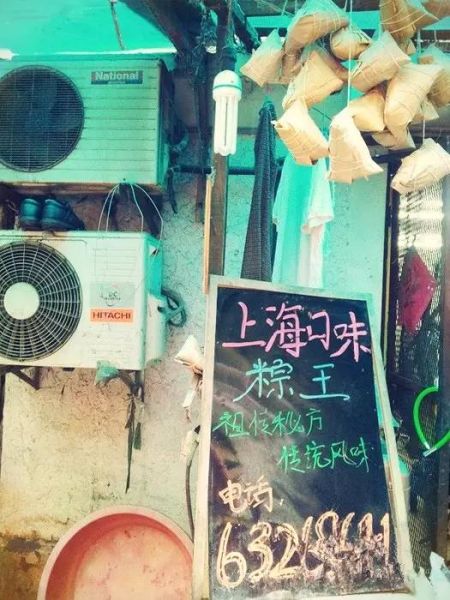 National
HITACHI
上海口味
粽王
祖传秘方
传统风味
电话: